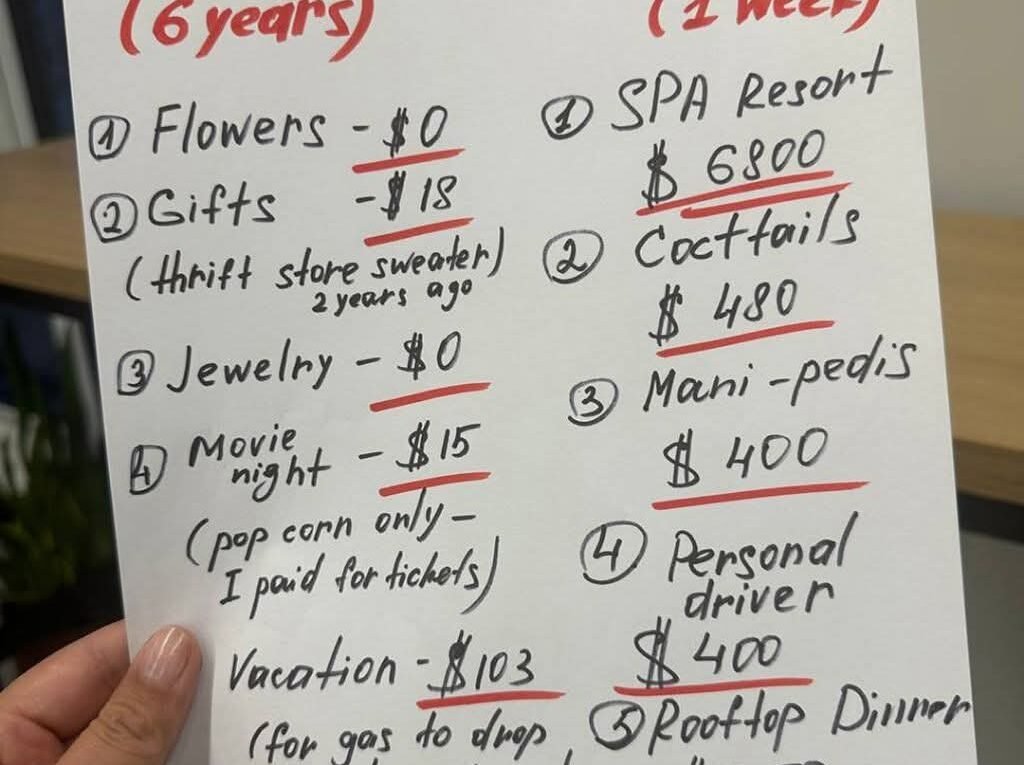 (6 years)
① Flowers - $0
② Gifts - $18
(thrift store sweater)
2 years ago
③ Jewelry - $0
④ Movie
night - $15
(pop corn only -
I paid for tickets)
Vacation - $103
(for gas to drop
(1 week)
① SPA Resort
$ 6800
② Cocttails
$ 480
③ Mani-pedis
$ 400
④ Personal
driver
$ 400
⑤ Rooftop Dinner